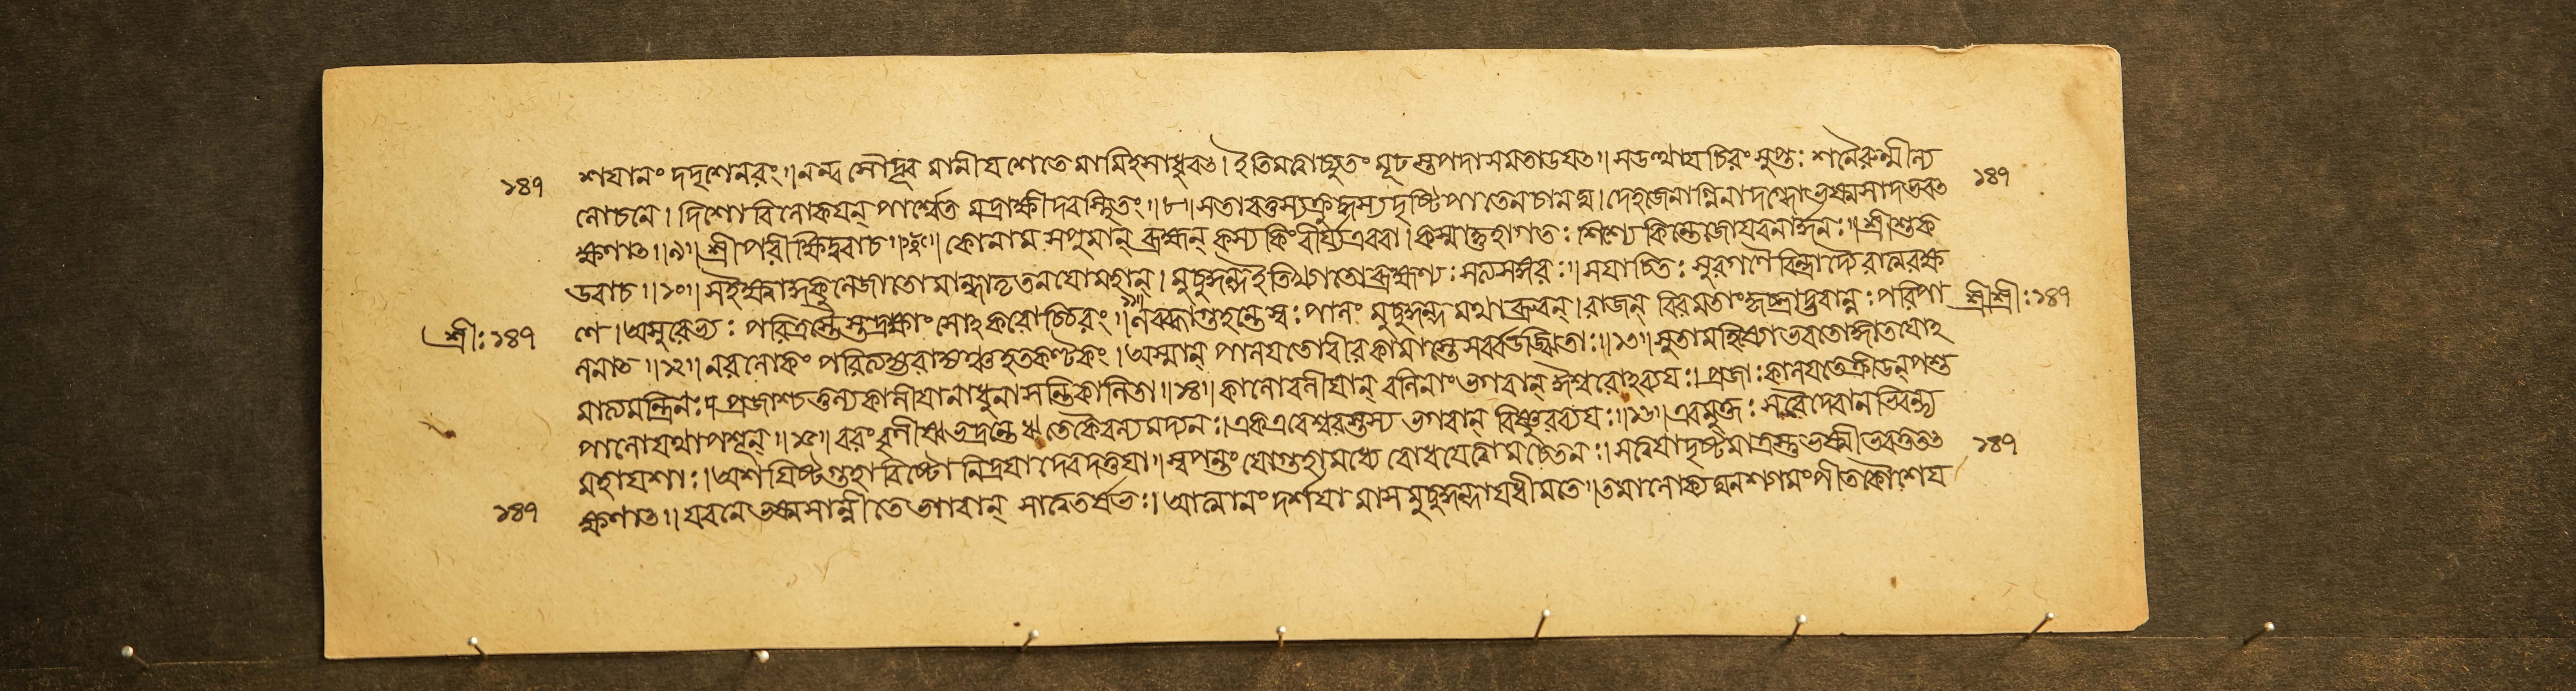 ১৪৭ শযানং দদৃশেনরং॥নন্ব সৌদূর মানীয শেতে মামিহসাধুবৎ। ইতিমত্বাচ্যুতং মূঢ স্তপদাসমতাডযৎ॥ সউত্থায চিরংসুপ্তঃ শনৈরুন্মীল্য ১৪৭
লোচনে। দিশো বিলোকযন্ পার্শ্বেত মদ্রাক্ষীদবস্থিতং॥৮॥ সতাবত্তস্যক্রুদ্ধস্য দৃষ্টিপাতেন। দেহজেনাগ্নিনাদগ্ধোভস্মসাদভবৎ
ক্ষণাৎ॥৯॥ শ্রীপরীক্ষিদুবাচ॥ কোনাম সপুমান্ ব্রহ্মন্ কস্য কিংবীর্য্যএববা। কস্মাদ্গুহাগতঃ শিশ্যে কিন্তেজোযবনার্দ্দনঃ॥ শ্রীশুক
উবাচ॥১০॥ সইক্ষ্বাকুকুলেজাতো মান্ধাতৃতনযোমহান্। মুচুকুন্দইতিখ্যাতোব্রহ্মণ্যঃ সত্যসঙ্গরঃ॥ সযাচিতঃ সুরগণৈরিন্দ্রাদ্যৈরাত্মরক্ষ
শ্রীঃ১৪৭ ণে। অসুরেভ্যঃ পরিত্রস্তৈস্তদ্রক্ষাং সোঽকরোচ্চিরং॥ লব্ধ্বাগুহন্তেস্বঃপালং মুচুকুন্দ মথাব্রুবন্। রাজন্ বিরমতাংকৃচ্ছ্রাদ্ভবান্নঃ পরিপা শ্রীশ্রীঃ১৪৭
লনাৎ॥১২॥ নরলোকং পরিত্যজ্যরাজ্যঞ্চ হতকণ্টকং। অস্মান্ পালযতোবীরকামাস্তেসর্ব্বউজ্ঝিতাঃ॥১৩॥ সুতামহিষ্যোভবতোজ্ঞাতযোঽ
মাত্যমন্ত্রিনঃ প্রজাশ্চতুল্যকালীযানাধুনাসন্তিকালিতা॥১৪॥ কালোবলীযান্ বলিনাং ভগবান্ ঈশ্বরোঽব্যযঃ। প্রজাঃকালযতেক্রীডন্পশু
পালোযথাপশূন্॥১৫॥ বরংবৃণীষ্বভদ্রন্তেঋতেকৈবল্যমদ্যনঃ। একএবেশ্বরস্তস্য ভগবান্ বিষ্ণুরব্যযঃ॥১৬॥ এবমুক্তঃ সবৈদেবানভিবন্দ্য
মহাযশাঃ। অশযিষ্টগুহাবিষ্টো নিদ্রযাদেবদত্তযা॥ স্বপন্তং যোগুহামধ্যে বোধযেত্ত্বামচেতনঃ। সত্বযাদৃষ্টমাত্রস্তুভস্মীভবতুতৎ ১৪৭
১৪৭ ক্ষণাৎ॥ যবনেভস্মসান্নীতে ভগবান্ সাত্বতর্ষভঃ। আত্মানং দর্শযা মাসমুচুকুন্দাযধীমতে॥ তমালোক্যঘনশ্যামংপীতকৌশেয